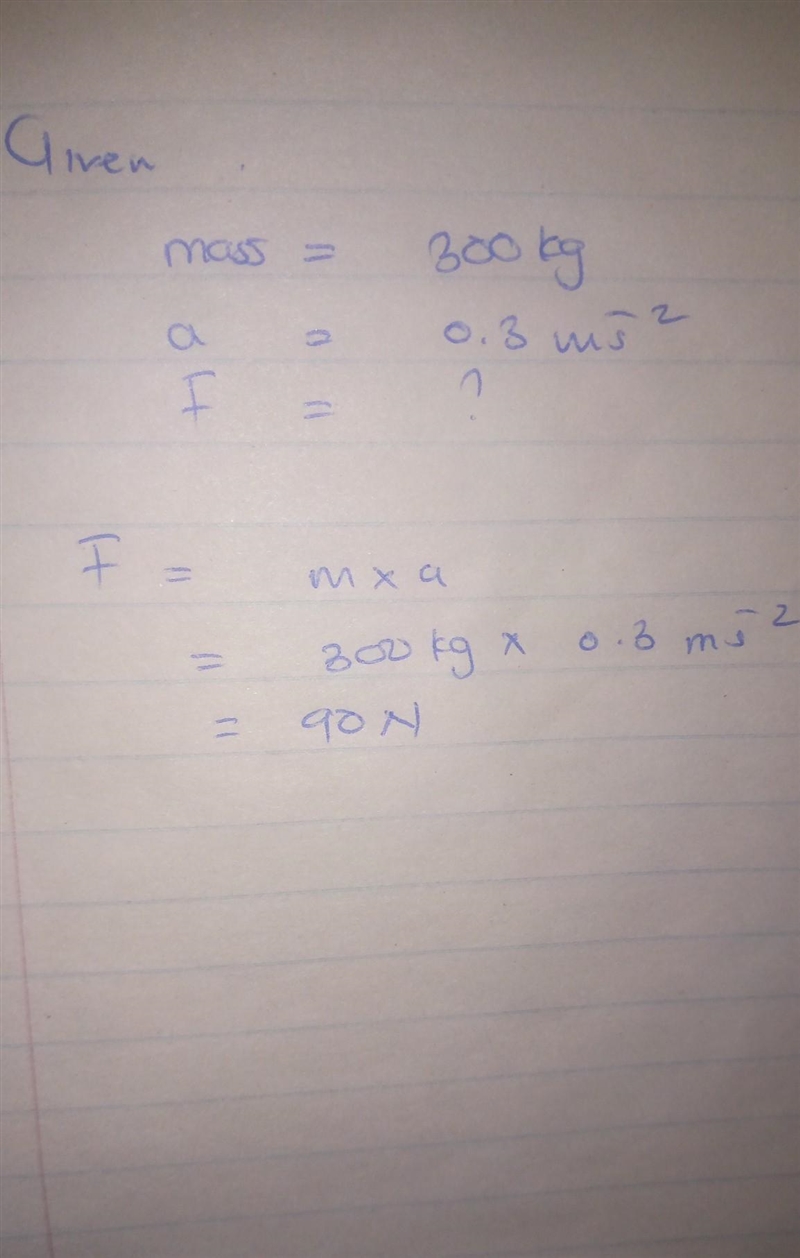 Given
mass = 300 kg
a = 0.3 ms⁻²
F = ?
F = m x a
= 300 kg x 0.3 ms⁻²
= 90 N